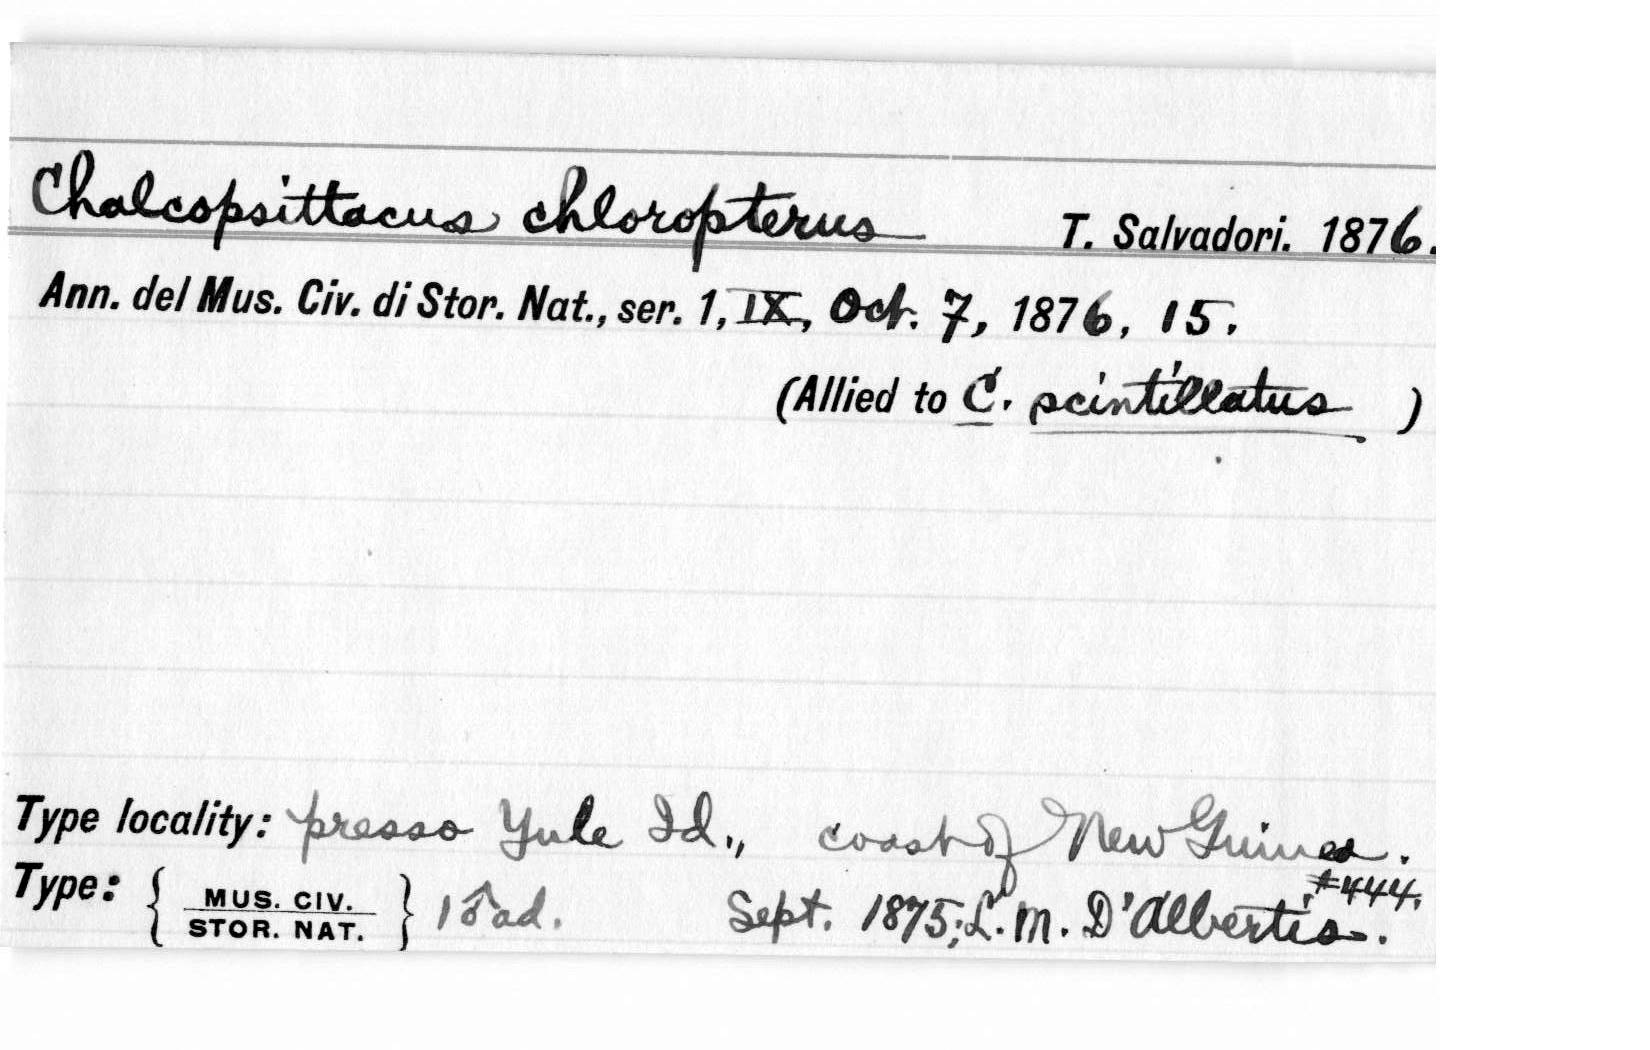 Chalcopsittacus chloropterus T. Salvadori. 1876.
Ann. del Mus. Civ. di Stor. Nat., ser. 1, IX, Oct. 7, 1876, 15.
(Allied to C. scintillatus )
Type locality: presso Yule Id., coast of New Guinea.
#444.
Type: { MUS. CIV. / STOR. NAT. } 1 ♂ ad. Sept. 1875; L. M. D'Albertis.